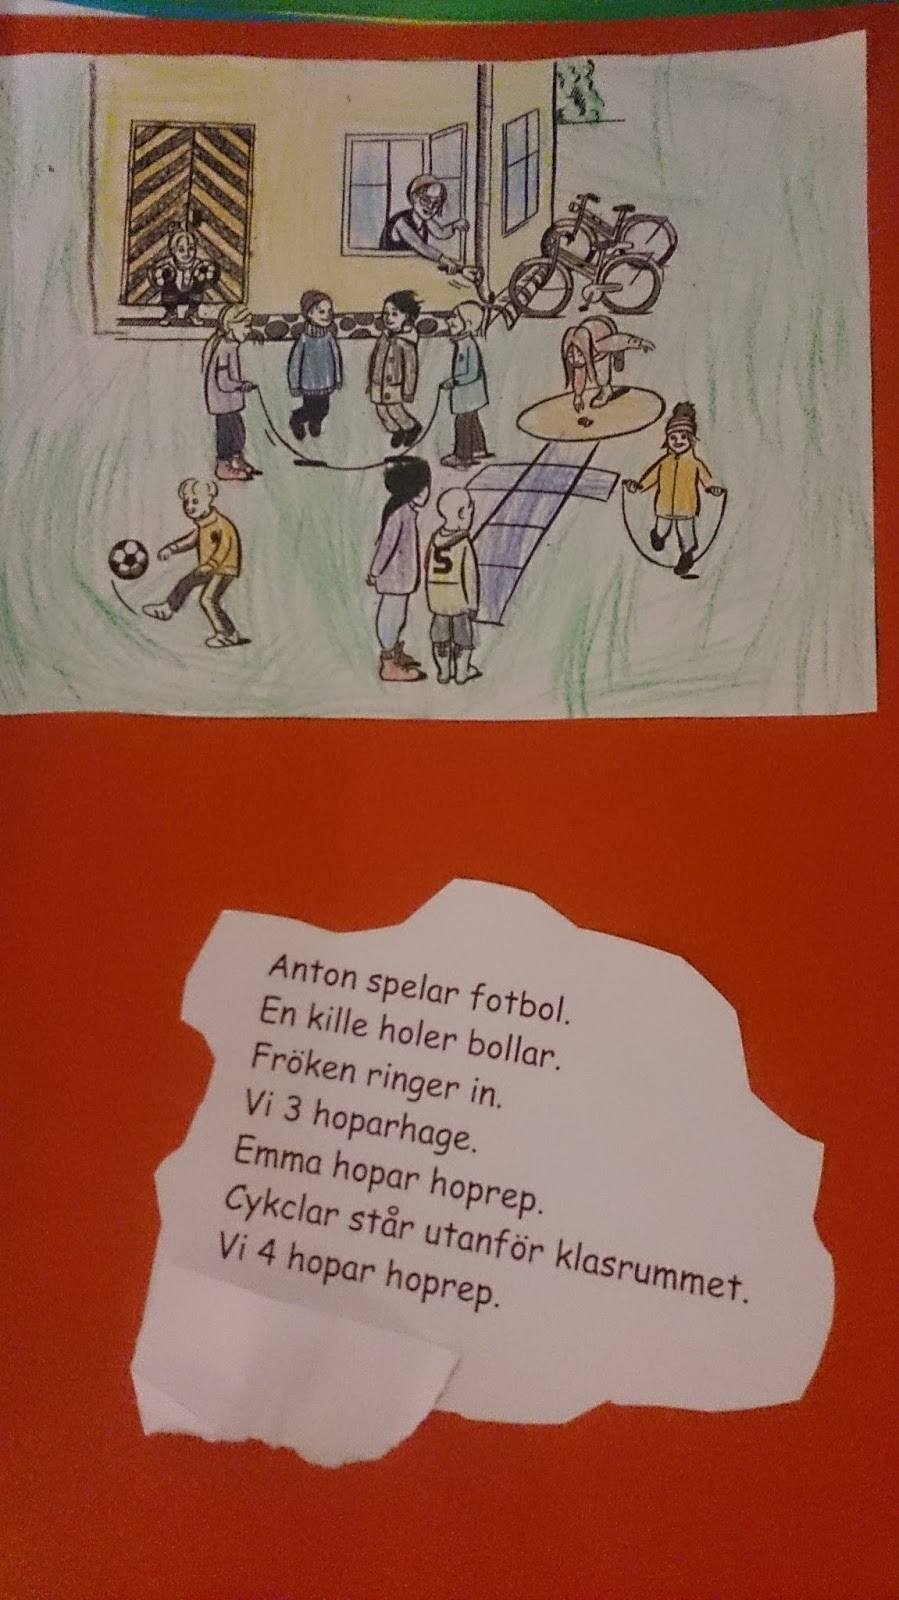 5
Anton spelar fotbol.
En kille holer bollar.
Fröken ringer in.
Vi 3 hoparhage.
Emma hopar hoprep.
Cykclar står utanför klasrummet.
Vi 4 hopar hoprep.